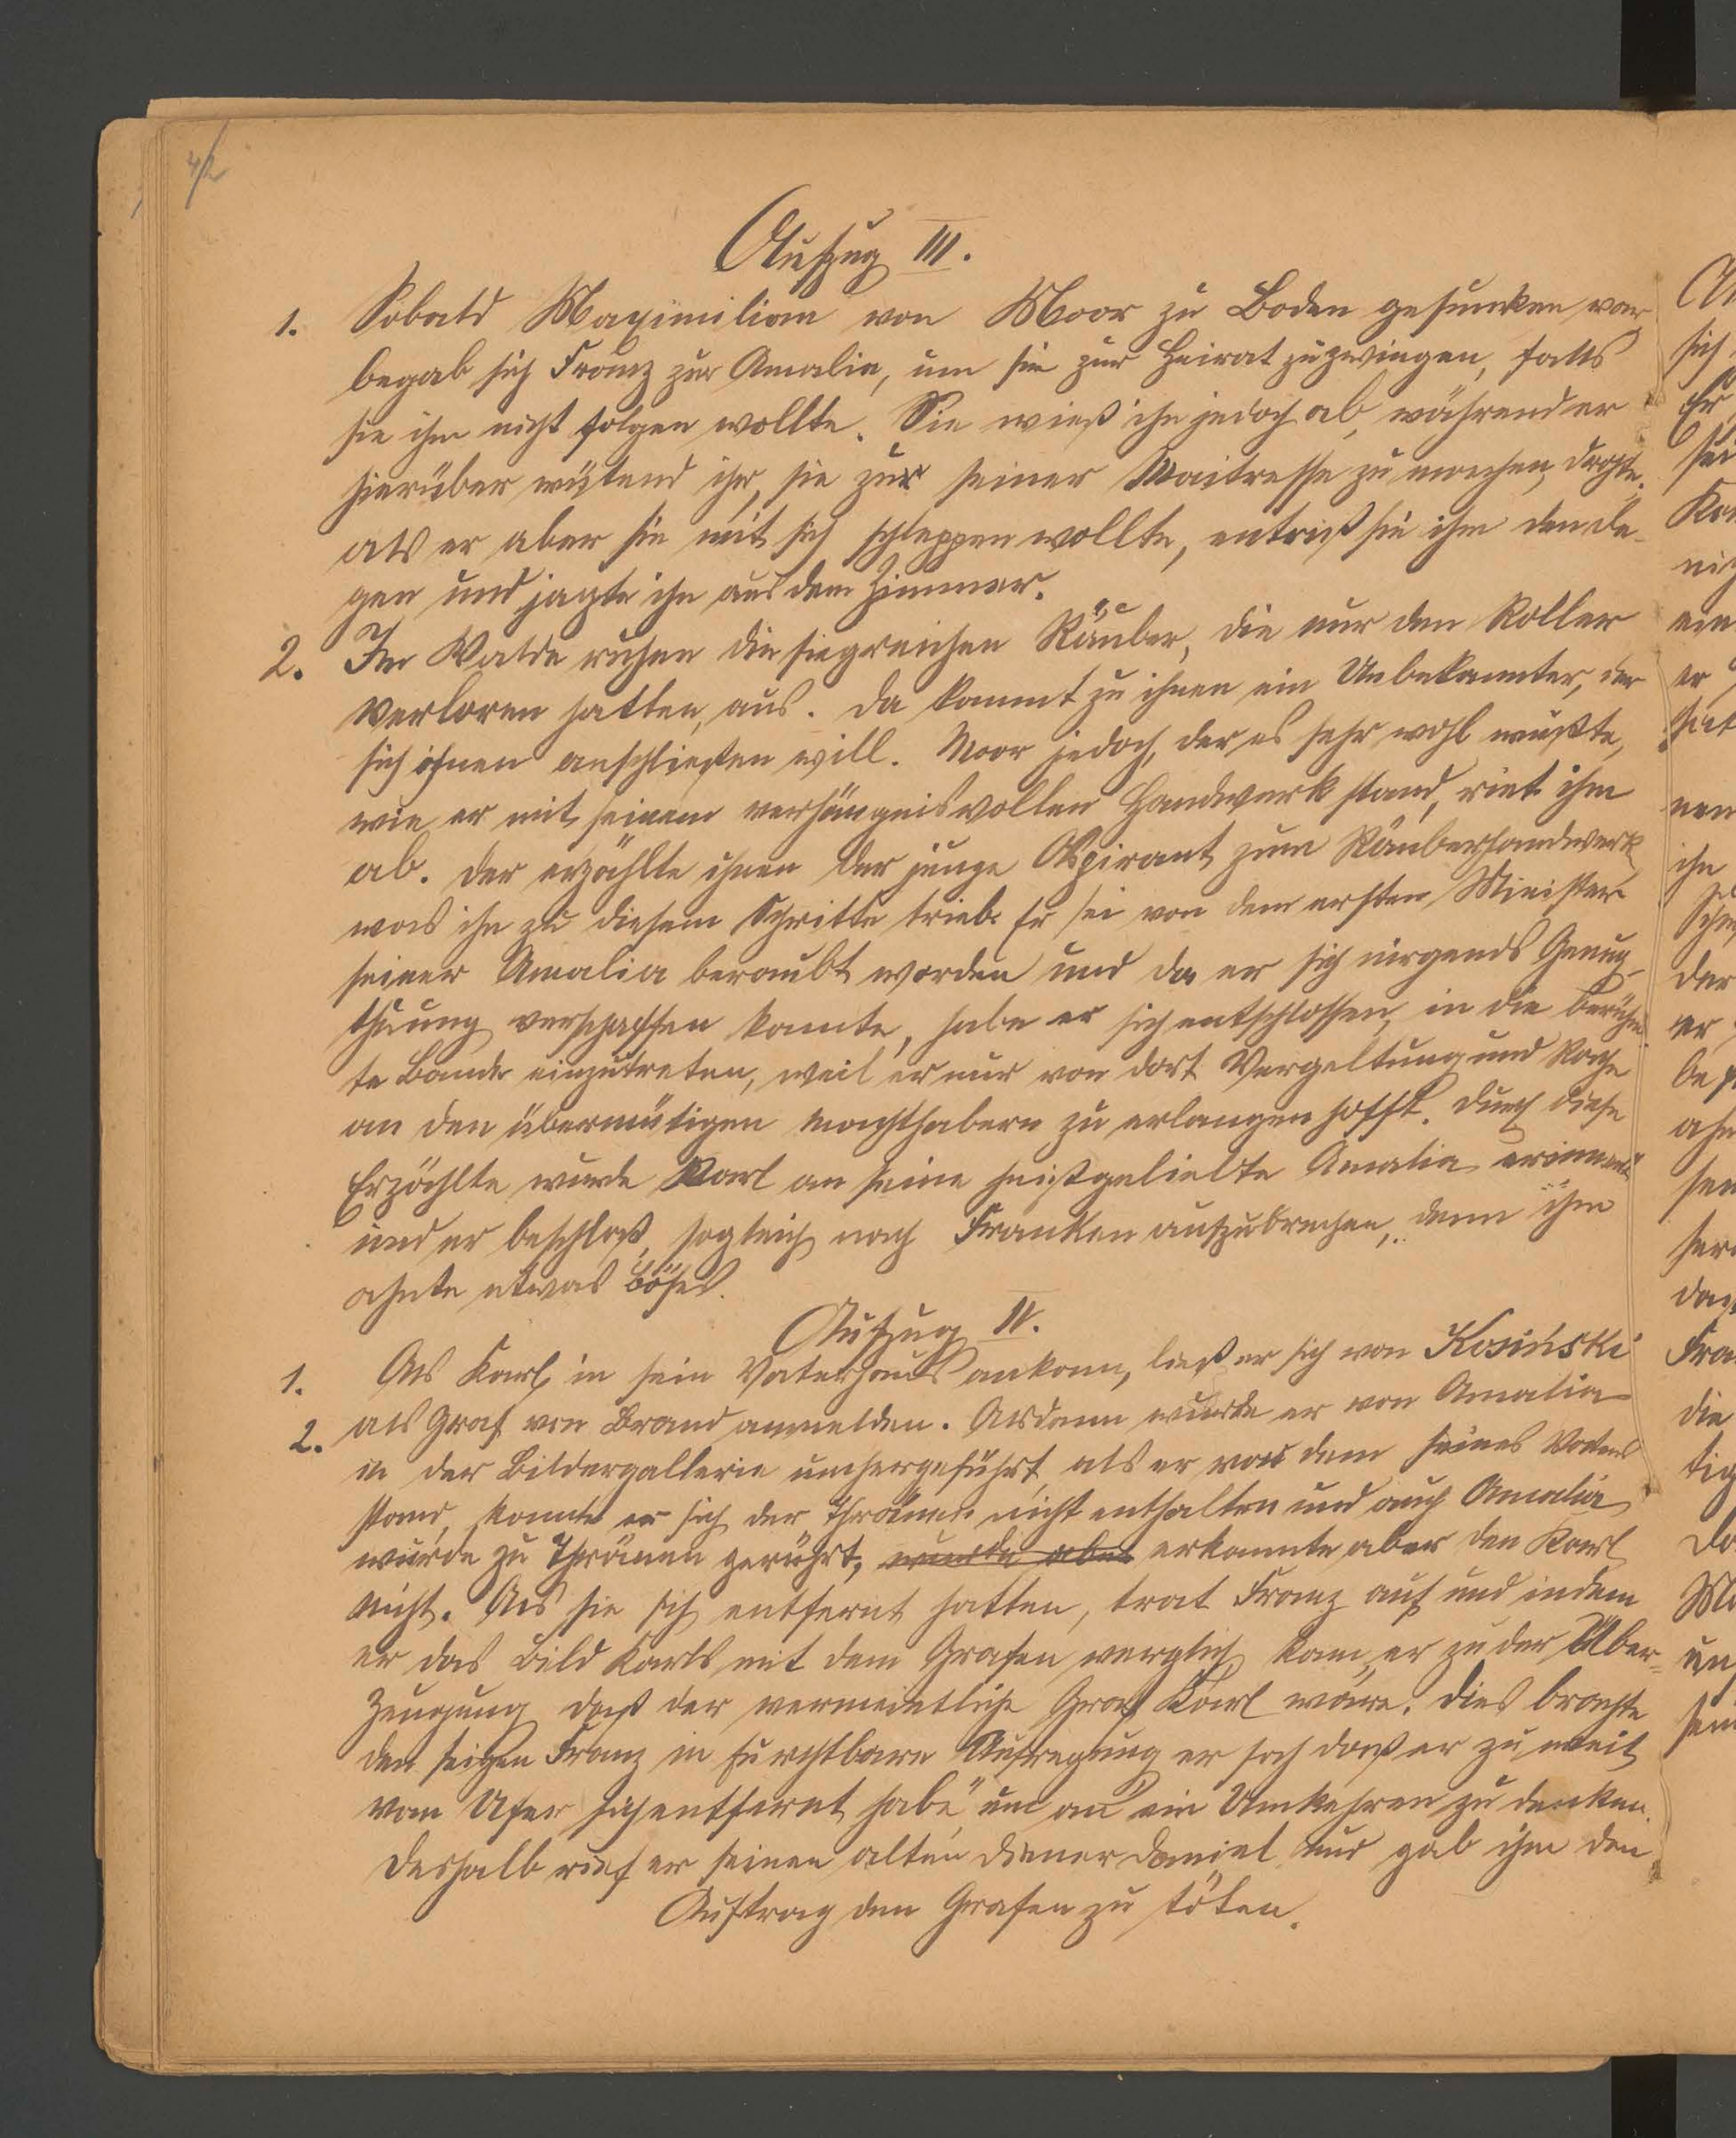 42
Aufzug III.
1. Sobald Maximilian von Moor zu Boden gesunken war
begab sich Franz zur Amalia, um sie zur Heirat zu zwingen, falls
sie ihm nicht folgen wollte. Sie wieß ihn jedoch ab, während er
hierüber wütend ihr, sie zur seiner Maitresse zu machen, drohte.
als er aber sie mit sich schleppen wollte, entriß sie ihm den De-
gen und jagte ihn aus dem Zimmer.
2. Im Walde ruhen die siegreichen Räuber, die nur den Roller
verloren hatten, aus. Da kommt zu ihnen ein Unbekannter, der
sich ihnen anschließen will. Moor jedoch, der es sehr wohl wußte,
wie er mit seinem verhängnisvollen Handwerk stand, riet ihm
ab. Der erzählte ihnen der junge Aspirant zum Räuberhandwerk
was ihn zu diesem Schritte trieb. Er sei von dem ersten Minister
seiner Amalia beraubt worden und da er sich nirgends Genug-
thuung verschaffen konnte, habe er sich entschlossen, in die berühm-
te Bande einzutreten, weil er nur von dort Vergeltung und Rache
an den übermütigen Machthabern zu erlangen hofft. Durch diese
Erzählte wurde Karl an seine heißgeliebte Amalia erinnert
und er beschloß, sogleich nach Franken aufzubrechen, denn ihm
ahnte etwas Böses.
Aufzug IV.
1. Als Karl in sein Vaterhaus ankam, ließ er sich von Kosiński
2. als Graf von Brand anmelden. Alsdann wurde er von Amalia
in der Bildergallerie umhergeführt, als er vor dem seines Vaters
stand, konnte er sich der Thränen nicht enthalten und auch Amalia
wurde zu Thränen gerührt, wurde aber erkannte aber den Karl
nicht. Als sie sich entfernt hatten, trat Franz auf und indem
er das Bild Karls mit dem Grafen verglich, kam er zu der Über-
zeugung daß der vermeintliche Graf Karl wäre. Dies brachte
den feigen Franz in furchtbare Aufregung er sah daß er zu weit
vom Ufer sich entfernt habe, um an ein Umkehren zu denken.
Deshalb rief er seinen alten Diener Daniel und gab ihm den
Auftrag den Grafen zu töten.